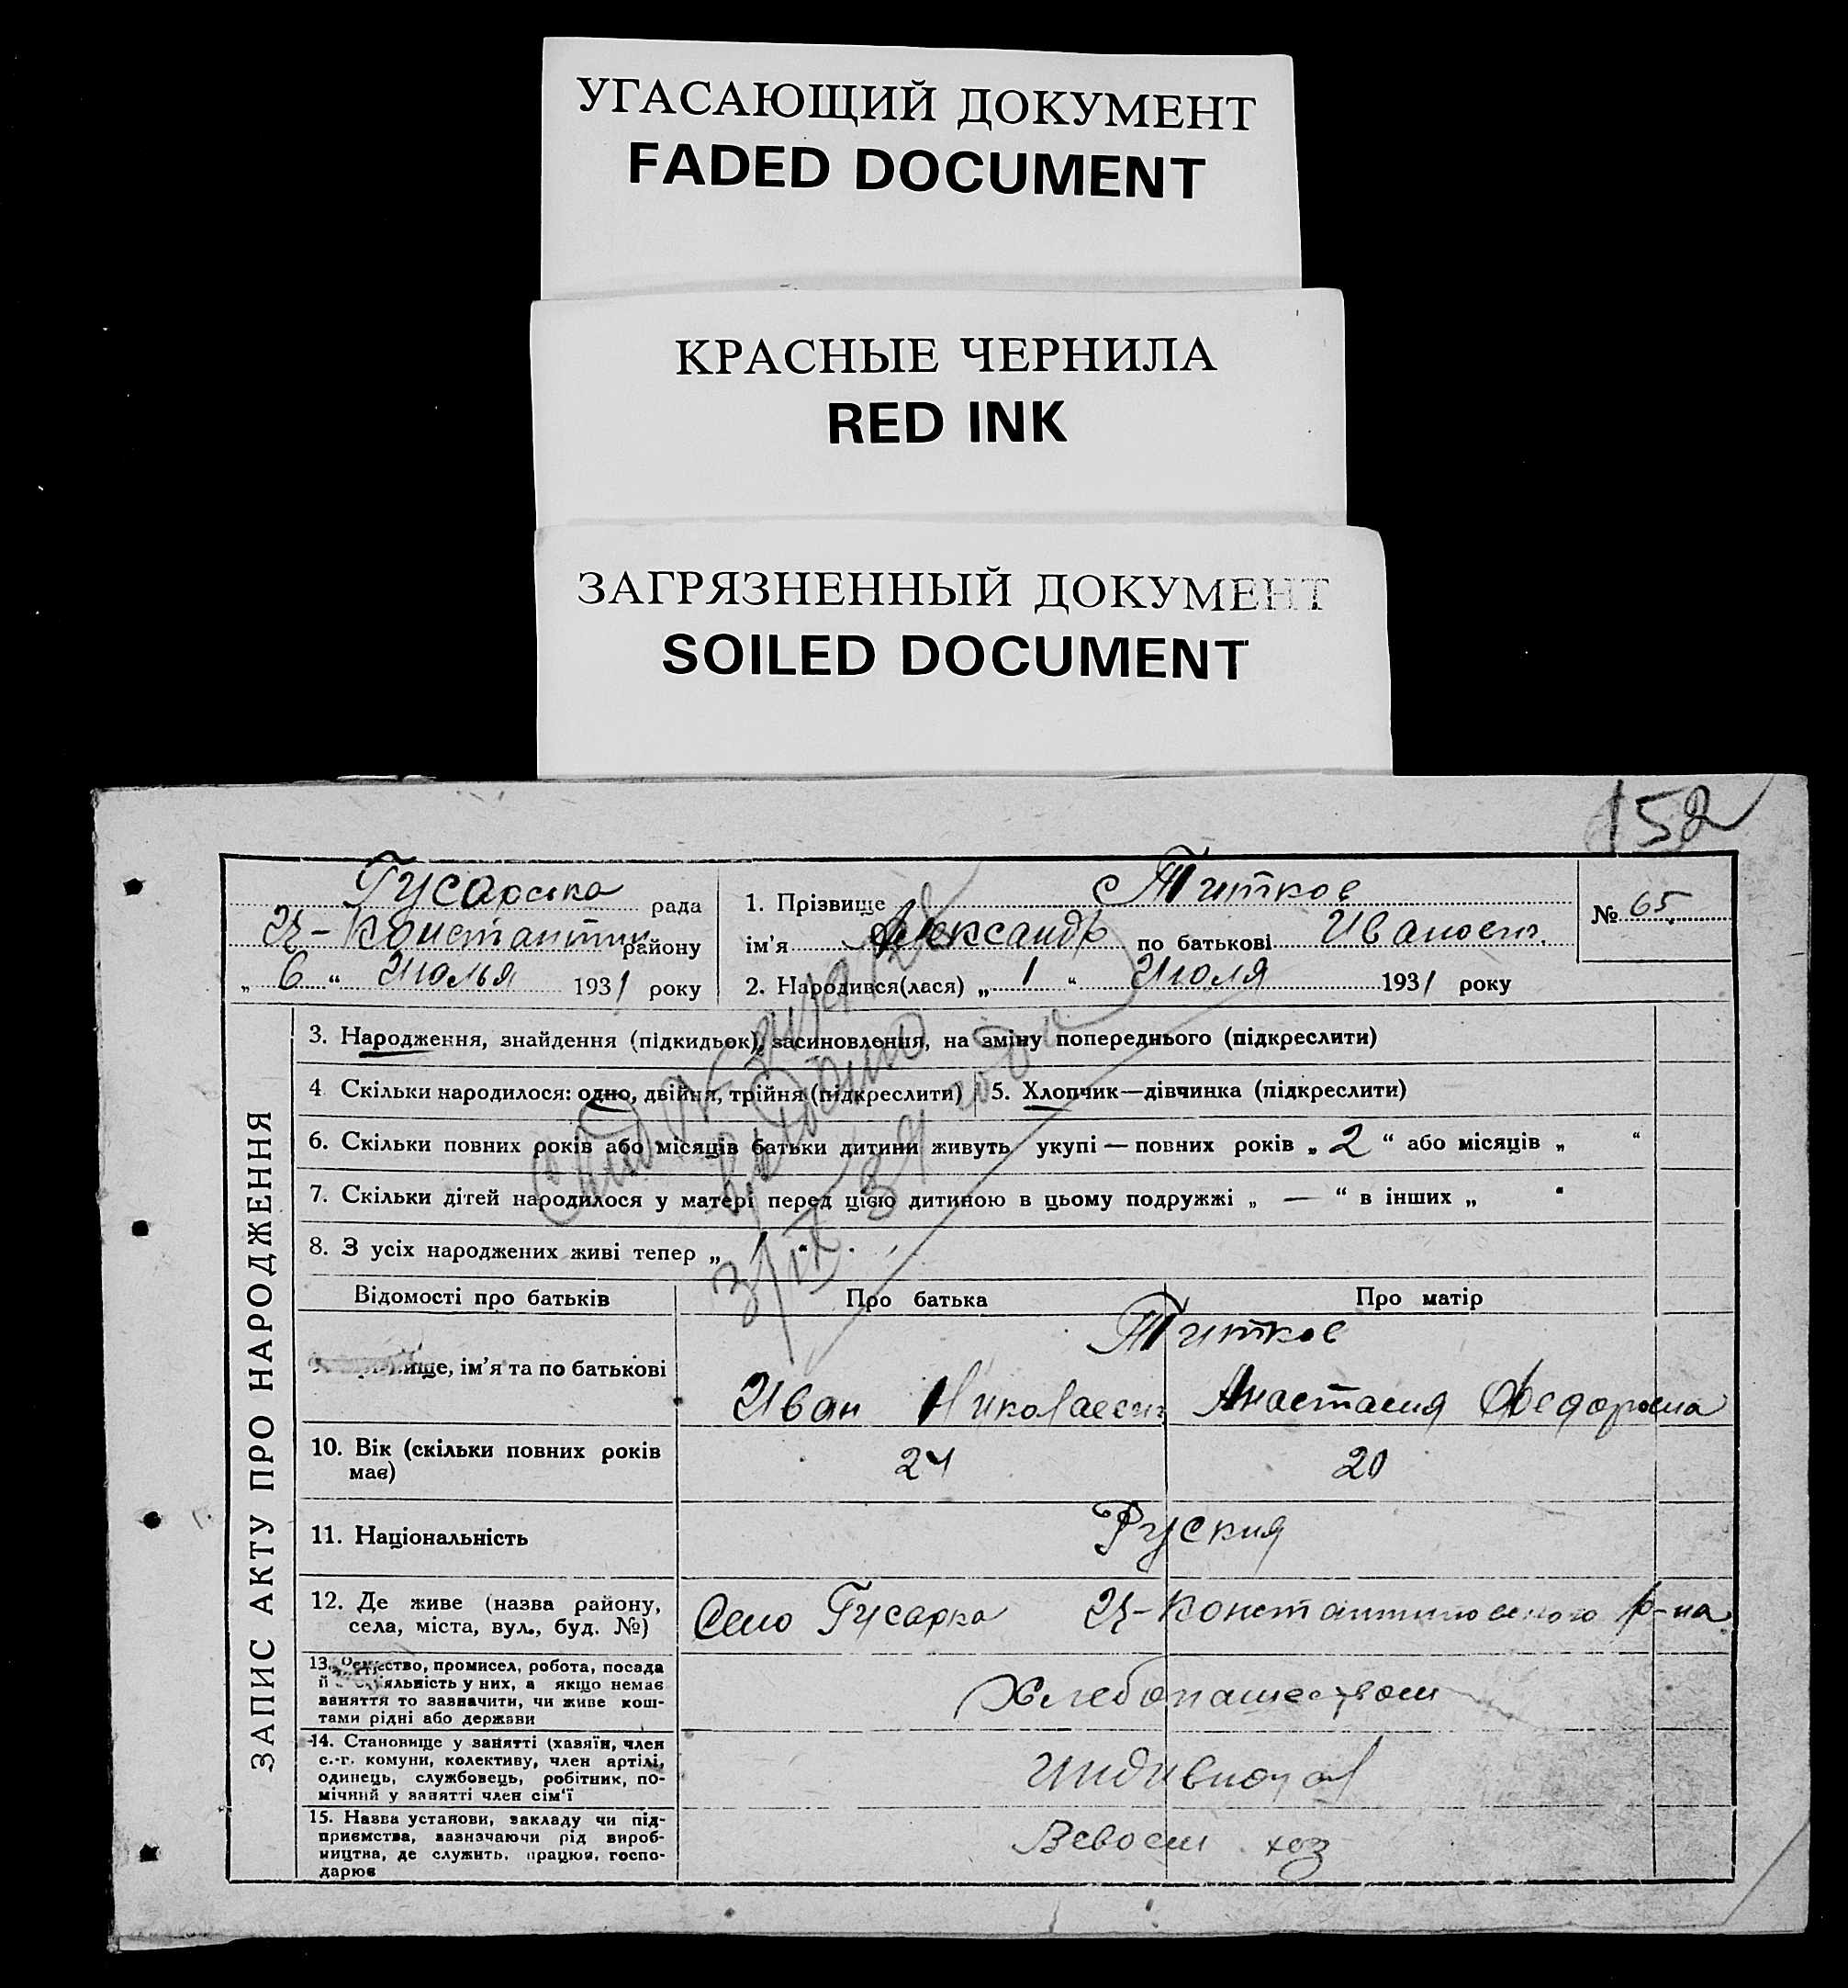 УГАСАЮЩИЙ ДОКУМЕНТ
FADED DOCUMENT
КРАСНЫЕ ЧЕРНИЛА
RED INK
ЗАГРЯЗНЕННЫЙ ДОКУМЕНТ
SOILED DOCUMENT
152
Гусарска рада
Ц-Константин району
„ 6 “ Июлья 1931 року
1. Прізвище Титков
ім’я Александр по батькові Иваносич.
2. Народився(лася) „ 1 “ Июля 1931 року
№ 65
ЗАПИС АКТУ ПРО НАРОДЖЕННЯ
3. Народження, знайдення (підкидьок), засиновлення, на зміну попереднього (підкреслити)
4 Скільки народилося: одно, двійня, трійня (підкреслити)
5. Хлопчик—дівчинка (підкреслити)
6. Скільки повних років або місяців батьки дитини живуть укупі — повних років „ 2 “ або місяців „ “
7. Скільки дітей народилося у матері перед цією дитиною в цьому подружжі „ — “ в інших „ “
8. З усіх народжених живі тепер „ 1 “
3/IX 39 года
Відомості про батьків
Про батька
Про матір
Титков
ім’я та по батькові
Иван Николаевич
Анастасия Федоровна
10. Вік (скільки повних років має)
24
20
11. Національність
Руския
12. Де живе (назва району,
села, міста, вул., буд. №)
Село Гусарка Ц-Константиновского р-на
13. Ремество, промисел, робота, посада
у них, а якщо немає
заняття то зазначити, чи живе кош-
тами рідні або держави
Хлебопашеством
14. Становище у занятті (хазяїн, член
с.-г. комуни, колективу, член артілі,
одинець, службовець, робітник, по-
мічний у занятті член сім’ї
Индивидуал
15. Назва установи, закладу чи під-
приємства, зазначаючи рід вироб-
ництва, де служить, працює, госпо-
дарює
Всвоем хоз